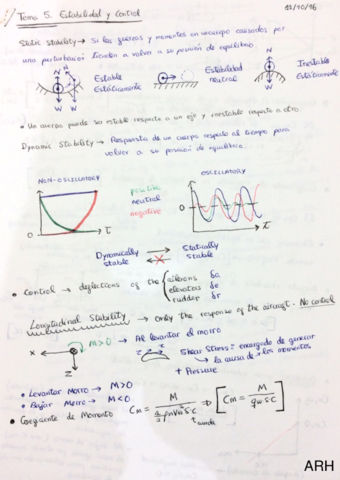 Tema 5. Estabilidad y control
11/10/16
Static stability → Si las fuerzas y momentos en un cuerpo causados por
una perturbación tienden a volver a su posición de equilibrio.
N
W
Estable
Estáticamente
N
W
Estabilidad
neutral
N
W
Inestable
Estáticamente
• Un cuerpo puede ser estable respecto a un eje y inestable respecto a otro.
Dynamic Stability → Respuesta de un cuerpo respecto al tiempo para
volver a su posición de equilibrio.
NON-OSCILLATORY
OSCILLATORY
positive
neutral
negative
0
τ
0
τ
Dynamically
stable
Statically
stable
• Control → deflections of the
ailerons δa
elevators δe
rudder δr
Longitudinal Stability → only the response of the aircraft. No control
X
Z
M>0 → Al levantar el morro
Shear Stress = encargado de generar
la causa de los momentos
+ Pressure
• Levantar Morro → M>0
• Bajar Morro → M<0
• Coeficiente de Momento Cm = M
⇒ [Cm = M / q∞ S c]
cuerda
ARH